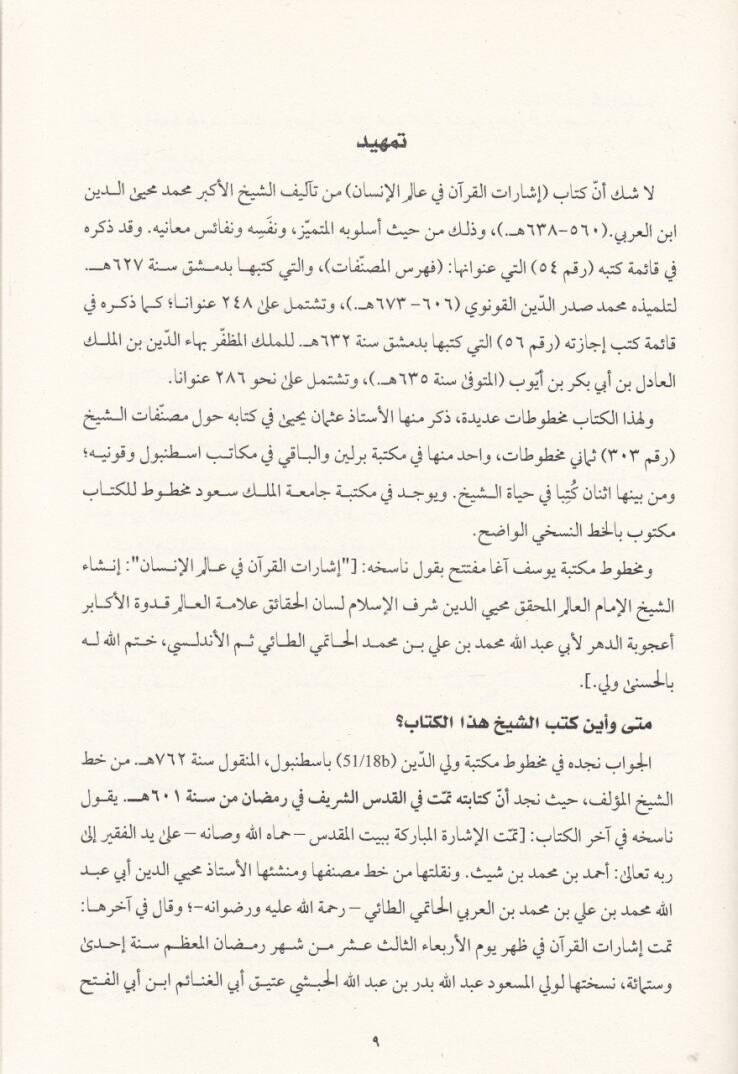 تمهيد
لا شك أنّ كتاب (إشارات القرآن في عالم الإنسان) من تآليف الشيخ الأكبر محمد محيى الدين
ابن العربي.(٥٦٠-٦٣٨هـ.)، وذلك من حيث أسلوبه المتميّز، ونفَسِه ونفائس معانيه. وقد ذكره
في قائمة كتبه (رقم ٥٤) التي عنوانها: (فهرس المصنّفات)، والتي كتبها بدمشق سنة ٦٢٧هـ.
لتلميذه محمد صدر الدّين القونوي (٦٠٦- ٦٧٣هـ.)، وتشتمل على ٢٤٨ عنوانا؛ كما ذكره في
قائمة كتب إجازته (رقم ٥٦) التي كتبها بدمشق سنة ٦٣٢هـ. للملك المظفّر بهاء الدّين بن الملك
العادل بن أبي بكر بن أيّوب (المتوفى سنة ٦٣٥هـ.)، وتشتمل على نحو ٢٨٦ عنوانا.
ولهذا الكتاب مخطوطات عديدة، ذكر منها الأستاذ عثمان يحيى في كتابه حول مصنّفات الشيخ
(رقم ٣٠٣) ثماني مخطوطات، واحد منها في مكتبة برلين والباقي في مكاتب اسطنبول وقونيه؛
ومن بينها اثنان كُتِبا في حياة الشيخ. ويوجد في مكتبة جامعة الملك سعود مخطوط للكتاب
مكتوب بالخط النسخي الواضح.
ومخطوط مكتبة يوسف آغا مفتتح بقول ناسخه: ["إشارات القرآن في عالم الإنسان": إنشاء
الشيخ الإمام العالم المحقق محيي الدين شرف الإسلام لسان الحقائق علامة العالم قدوة الأكابر
أعجوبة الدهر لأبي عبد الله محمد بن علي بن محمد الحاتمي الطائي ثم الأندلسي، ختم الله له
بالحسنى ولي.].
متى وأين كتب الشيخ هذا الكتاب؟
الجواب نجده في مخطوط مكتبة ولي الدّين (51/18b) باسطنبول، المنقول سنة ٧٦٢هـ. من خط
الشيخ المؤلف، حيث نجد أنّ كتابته تمّت في القدس الشريف في رمضان من سنة ٦٠١هـ. يقول
ناسخه في آخر الكتاب: [تمّت الإشارة المباركة ببيت المقدس – حماه الله وصانه – على يد الفقير إلى
ربه تعالى: أحمد بن محمد بن شيث. ونقلتها من خط مصنفها ومنشئها الأستاذ محيي الدين أبي عبد
الله محمد بن علي بن محمد بن العربي الحاتمي الطائي – رحمة الله عليه ورضوانه–؛ وقال في آخرها:
تمت إشارات القرآن في ظهر يوم الأربعاء الثالث عشر من شهر رمضان المعظم سنة إحدى
وستمائة، نسختها لولي المسعود عبد الله بدر بن عبد الله الحبشي عتيق أبي الغنائم ابن أبي الفتح
٩